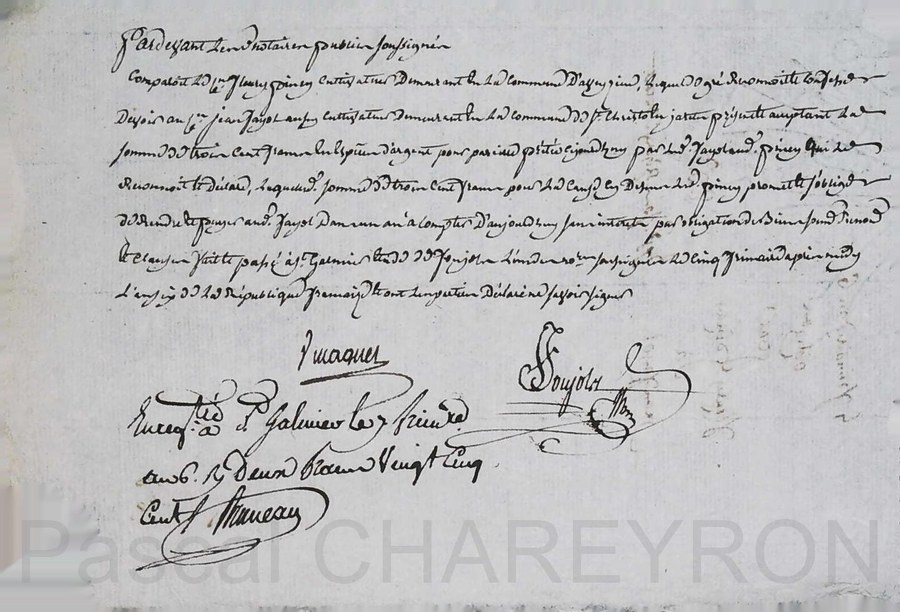 Pardevant les notaires publics soussignés
Comparoit le c.en fleury piney cultivateur demeurant en la commune d'aveyzieu, lequel de gré reconnoit et confesse
devoir au c.en jean Jayol aussy cultivateur demeurant en la commune de St Christo en jarret présent acceptant la
somme de trois cent francs en espèce d'argent pour pareille prêtée cejourdhuy par led. Jayol aud. piney qui le
reconnoit et déclare, laquelle d. somme de trois cent francs pour la cause cy dessus led. piney promet et s'oblige
de rendre et payer aud. Jayol dans un an à compter d'aujourdhuy sans interets par obligation de biens soumis renon.
et clauses fait et passé à St. Galmier étude de Foujols l'un des no.res soussignés le cinq frimaire après midy
L'an six de la République française et ont les parties déclaré ne savoir signer
Vmagnet
Foujols
Enregistré à St Galmier le 7 frimre
an 6. R deux francs Vingt cinq
Cent
Pascal CHAREYRON